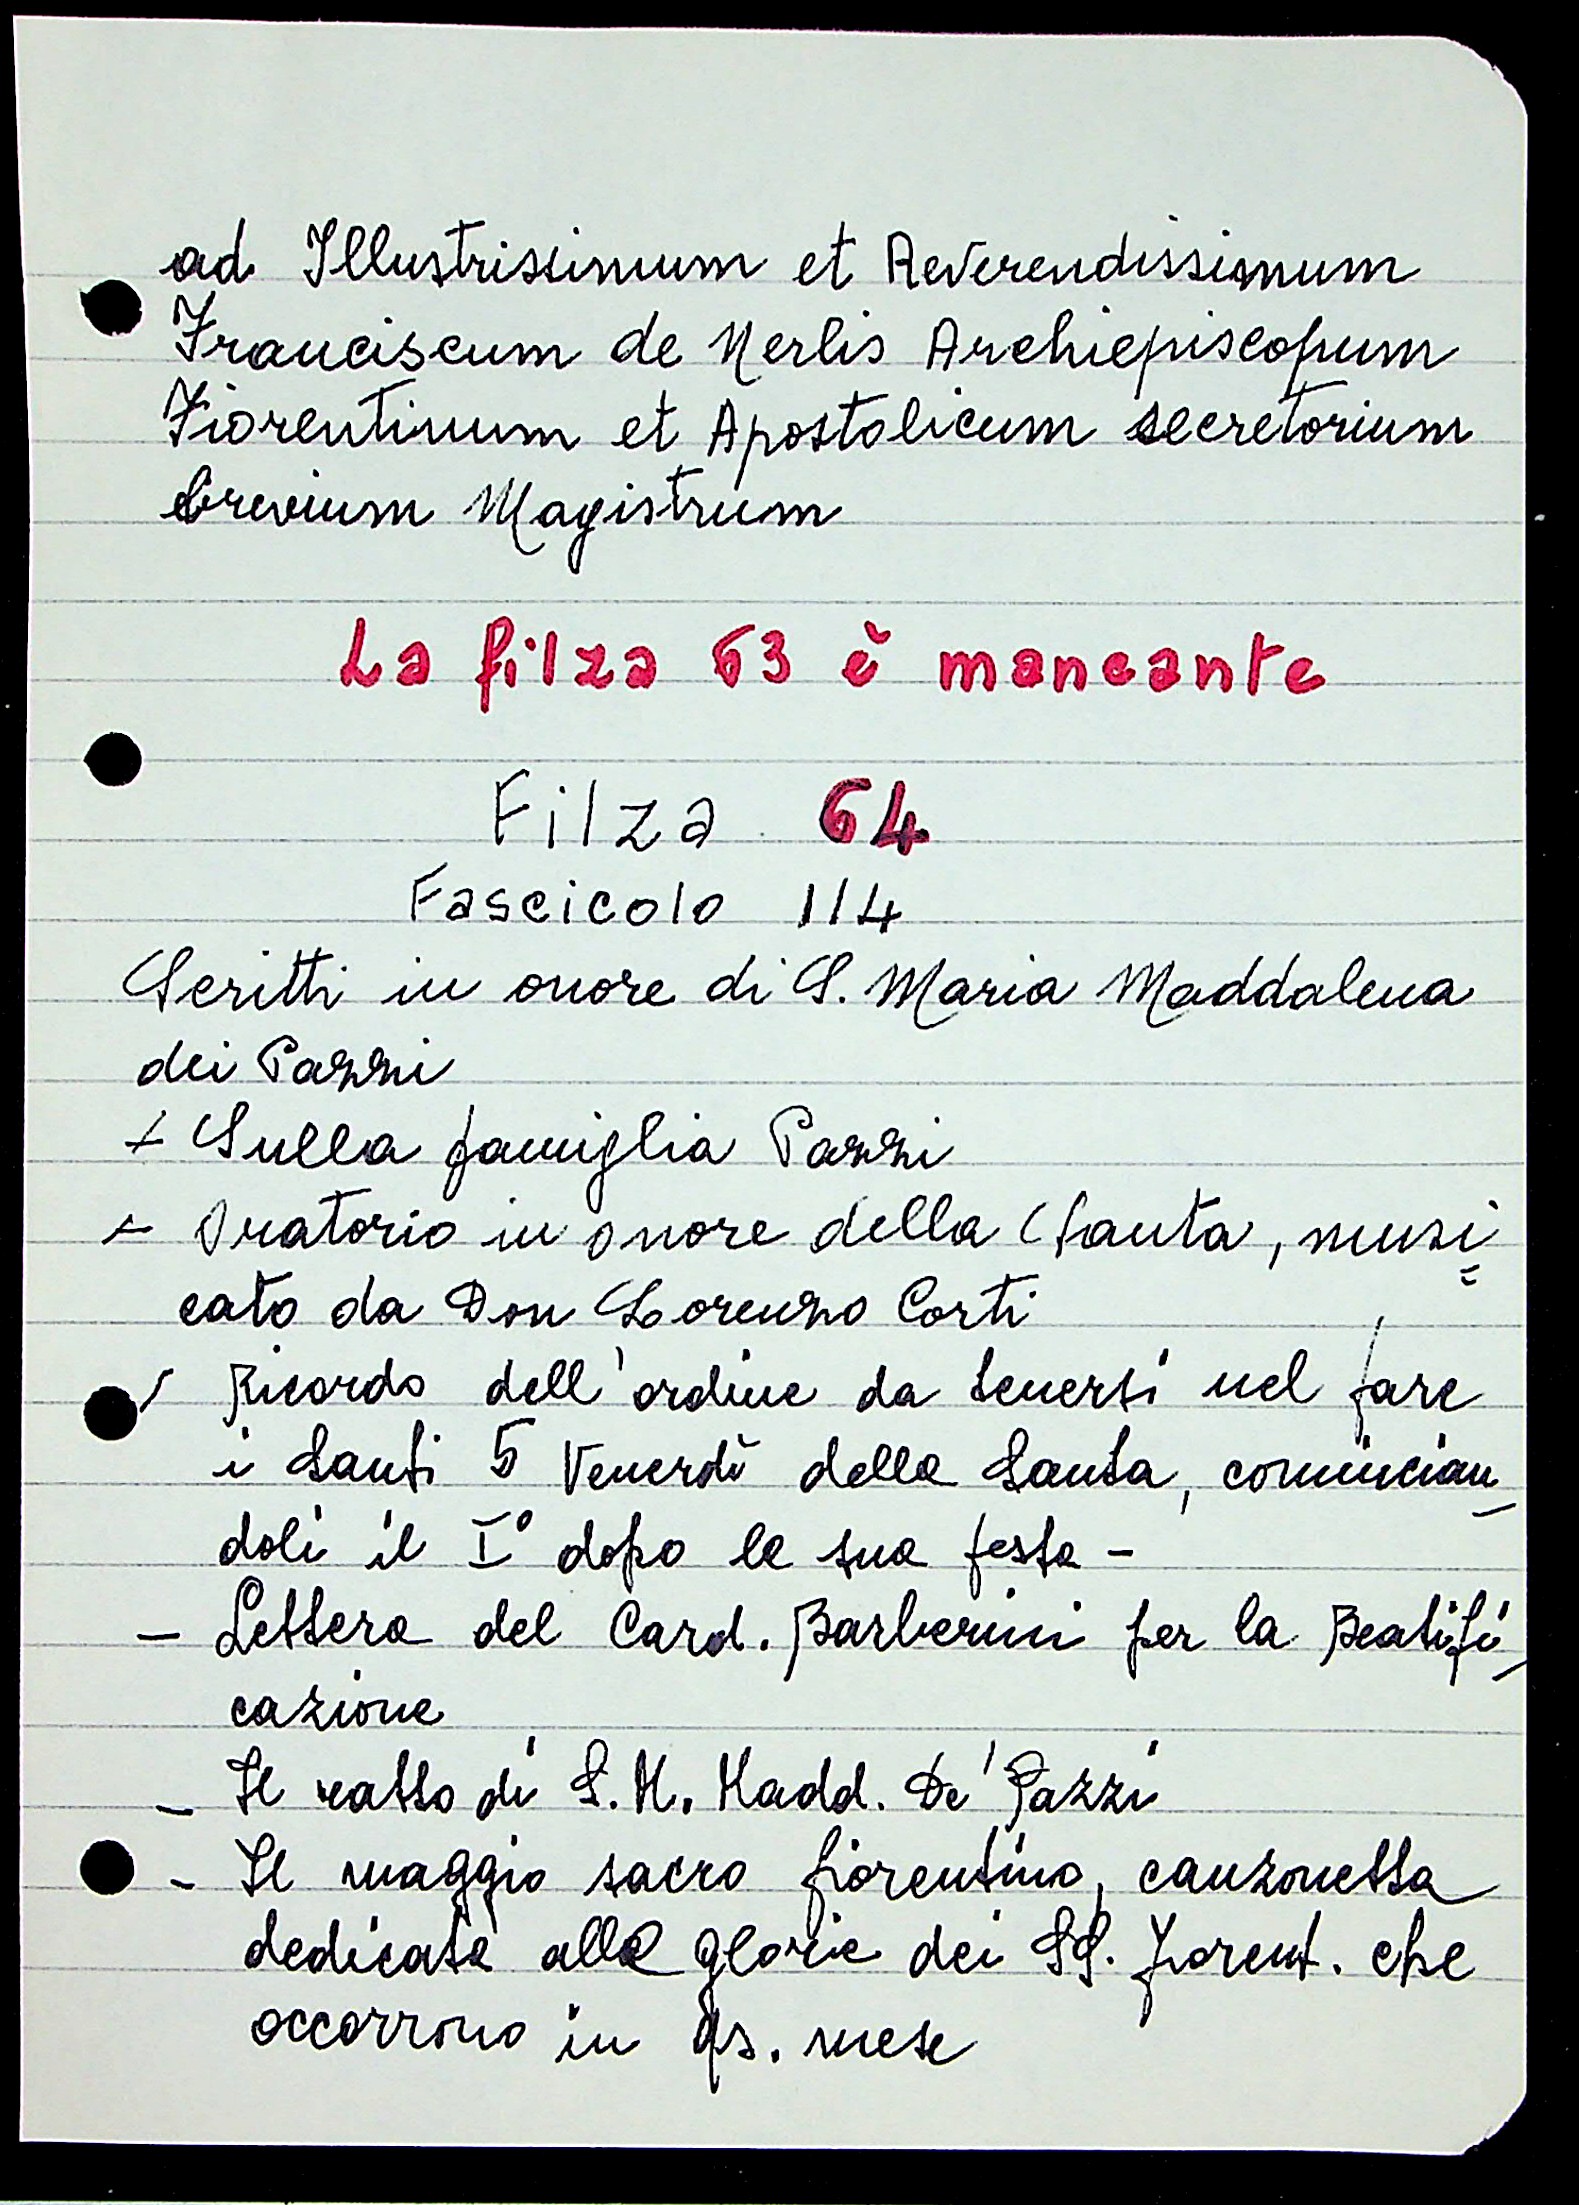 ad Illustrissimum et Reverendissimum
Franciscum de Nerlis Archiepiscopum
Fiorentinum et Apostolicum secretorium
brevium Magistrum
La filza 63 è mancante
Filza 64
Fascicolo 114
Scritti in onore di S. Maria Maddalena
dei Pazzi
+ Sulla famiglia Pazzi
+ Oratorio in onore della Santa, musi=
cato da Don Lorenzo Corti
/ Ricordo dell'ordine da tenersi nel fare
i Santi 5 Venerdì della Santa, comincian_
doli il I° dopo la sua festa -
- Lettera del Card. Barberini per la Beatifi_
cazione
- Il ratto di S. M. Madd. De' Pazzi
- Il maggio sacro fiorentino, canzonetta
dedicata alle glorie dei SS. fiorent. che
occorrono in qs. mese